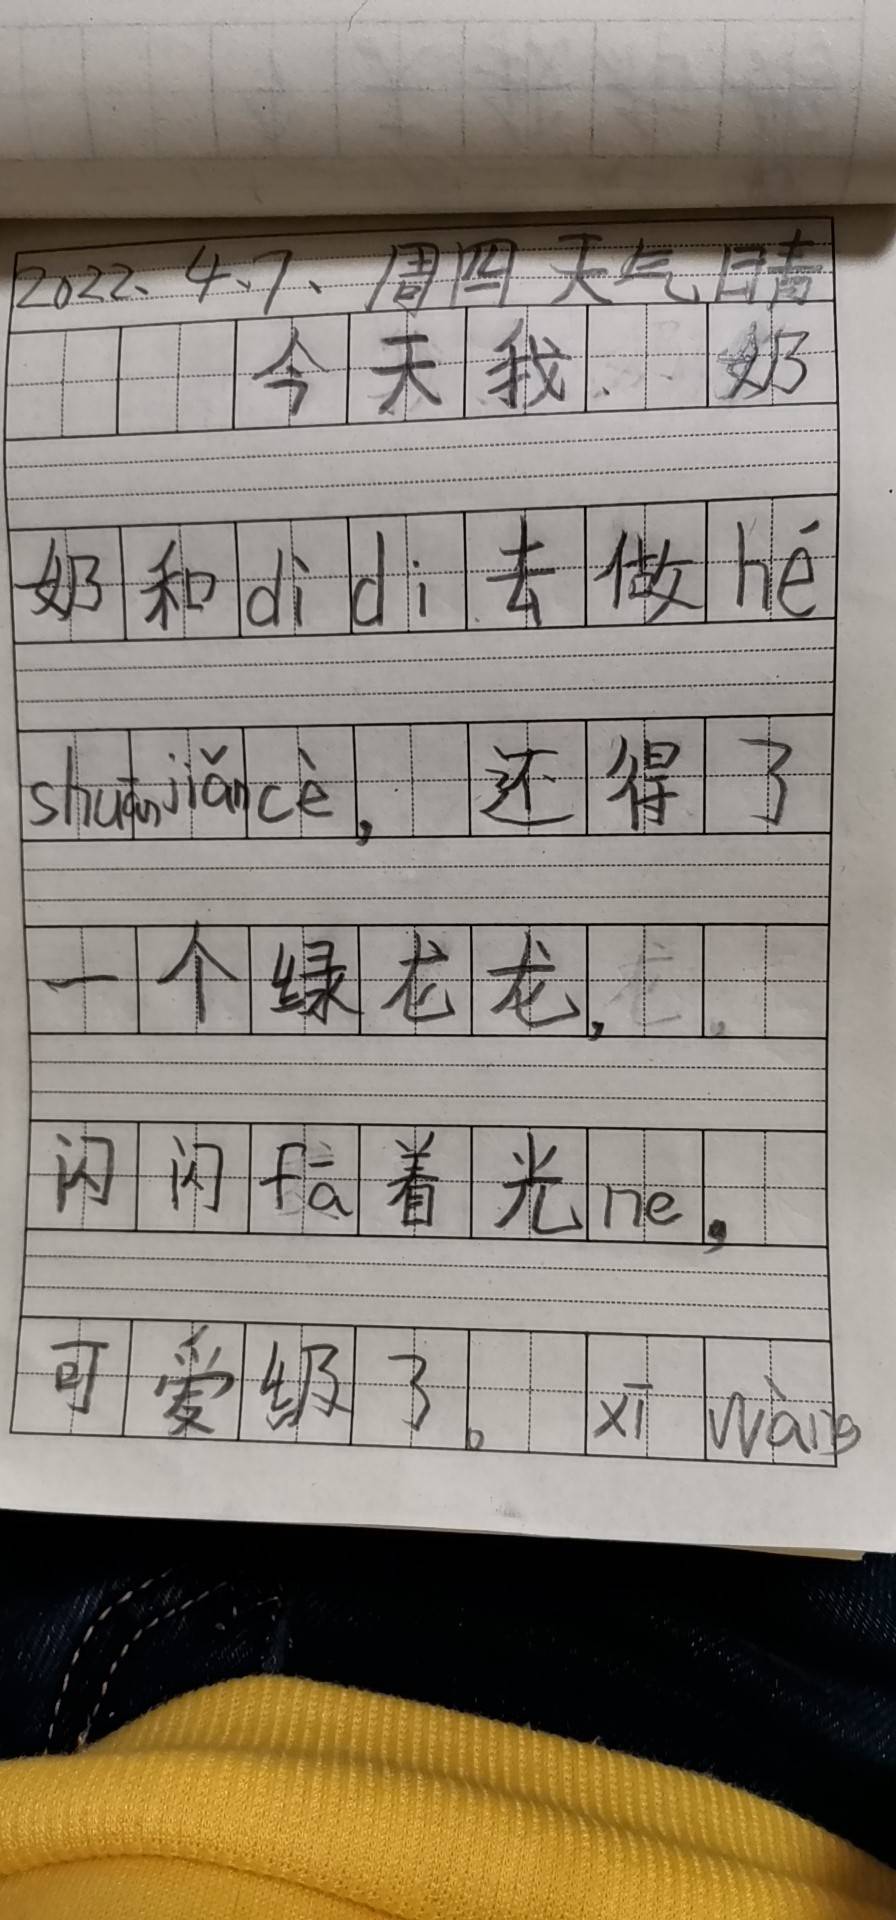 2022、4、7、周四 天气晴
今天我、奶
奶和dìdi去做hé
shuānjiǎncè，还得了
一个绿龙龙，
闪闪fā着光ne，
可爱级了。xīwàng